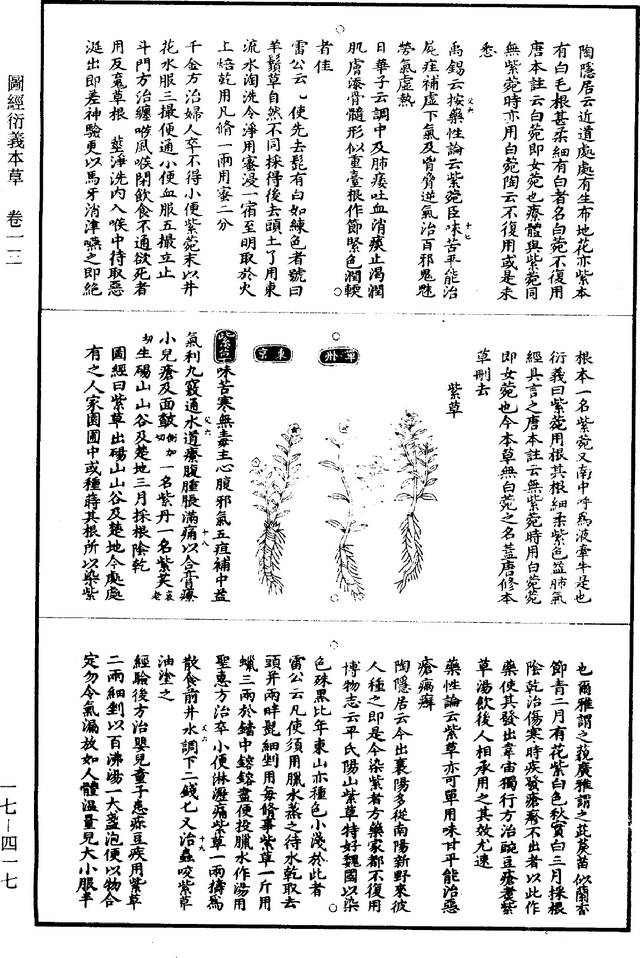 陶隱居云近道處處有生布地花亦紫本
有白毛根甚柔細有白者名白菀不復用
唐本註云白菀即女菀也療體與紫菀同
無紫菀時亦用白菀陶云不復用或是未
悉
禹錫云按藥性論云紫菀臣味苦平能治
尸疰補虛下氣及胷脅逆氣治百邪鬼魅
勞氣虛熱
日華子云調中及肺痿吐血消痰止渴潤
肌膚添骨髓形似重臺根作節緊色潤軟
者佳
雷公云凡使先去髭有白如練色者號曰
羊鬚草自然不同採得後去頭土了用東
流水淘洗令淨用蜜浸一宿至明取於火
上焙乾用凡脩一兩用蜜二分
千金方治婦人卒不得小便紫菀末以井
花水服三撮便通小便血服五撮立止
斗門方治纏喉風喉閉飲食不通欲死者
用反魂草根一莖淨洗內入喉中待取惡
涎出即差神驗更以馬牙消津嚥之即絕
根本一名紫菀又南中呼爲液牽牛是也
衍義曰紫菀用根其根細柔紫色益肺氣
經具言之唐本註云無紫菀時用白菀菀
即女菀也今本草無白菀之名蓋唐修本
草刪去
紫草
單州
東京
紫草味苦寒無毒主心腹邪氣五疸補中益
氣利九竅通水道療腹腫脹滿痛以合膏療
小兒瘡及面皻側加切一名紫丹一名紫芺哀老
切生碭山山谷及楚地三月採根陰乾
圖經曰紫草出碭山山谷及楚地今處處
有之人家園圃中或種蒔其根所以染紫
也爾雅謂之藐廣雅謂之茈䓞苗似蘭香
節青二月有花紫白色秋實白三月採根
陰乾治傷寒時疾發瘡疹不出者以此作
藥使其發出韋宙獨行方治豌豆瘡煑紫
草湯飲後人相承用之其效尤速
藥性論云紫草亦可單用味甘平能治惡
瘡瘑癬
陶隱居云今出襄陽多從南陽新野來彼
人種之即是今染紫者方藥家都不復用
博物志云平氏陽山紫草特好魏國以染
色殊黑比年東山亦種色小淺於此者
雷公云凡使須用臘水蒸之待水乾取去
頭并兩畔髭細剉用每脩事紫草一斤用
蠟三兩於鐺中鎔鎔盡便投臘水作湯用
聖惠方治卒小便淋瀝痛紫草一兩擣爲
散食前井水調下二錢匕又治蟲咬紫草
油塗之
經驗後方治嬰兒童子患疹豆疾用紫草
二兩細剉以百沸湯一大盞泡便以物合
定勿令氣漏放如人體溫量兒大小服半
圖經衍義本草 卷一二
一七－四一七